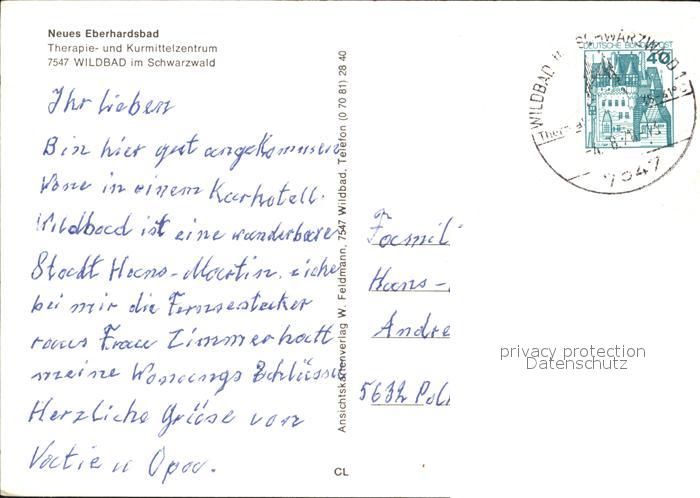 Neues Eberhardsbad
Therapie- und Kurmittelzentrum
7547 WILDBAD im Schwarzwald
Ihr lieben
Bin hier gut angekommen
Wone in einem Kurhotell.
Wildbad ist eine wunderbare
Stadt Hans-Martin, siehe
bei mir die Fernsestecker
raus Frau Zimmer hatt
meine Wonungs Schlüssel
Herzliche Grüse von
Vatie u Opa.
Ansichtskartenverlag W. Feldmann, 7547 Wildbad, Telefon (0 70 81) 28 40
CL
DEUTSCHE BUNDESPOST
40
WILDBAD SCHWARZWALD 1
7547
Famil
Hans-
Andre
5632
privacy protection
Datenschutz